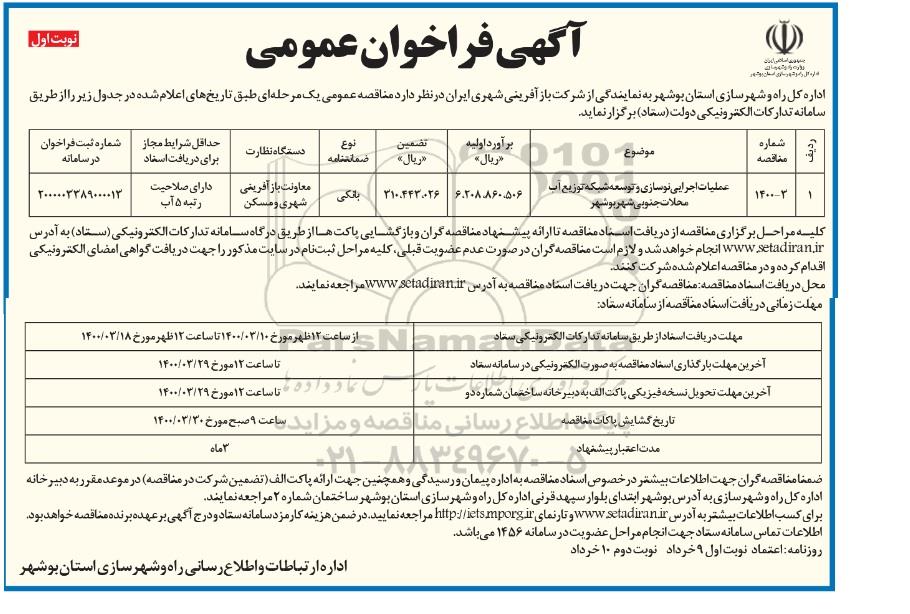 آگهی فراخوان عمومی
نوبت اول
جمهوری اسلامی ایران
وزارت راه و شهرسازی
اداره کل راه و شهرسازی استان بوشهر
اداره کل راه و شهرسازی استان بوشهر به نمایندگی از شرکت بازآفرینی شهری ایران در نظر دارد مناقصه عمومی یک مرحله‌ای طبق تاریخ‌های اعلام شده در جدول زیر را از طریق
سامانه تدارکات الکترونیکی دولت (ستاد) برگزار نماید.
ردیف | شماره مناقصه | موضوع | برآورد اولیه «ریال» | تضمین «ریال» | نوع ضمانتنامه | دستگاه نظارت | حداقل شرایط مجاز برای دریافت اسناد | شماره ثبت فراخوان در سامانه
۱ | ۱۴۰۰-۳ | عملیات اجرایی نوسازی و توسعه شبکه توزیع آب محلات جنوبی شهر بوشهر | ۶.۲۰۸.۸۶۰.۵۰۶ | ۳۱۰.۴۴۳.۰۲۶ | بانکی | معاونت بازآفرینی شهری و مسکن | دارای صلاحیت رتبه ۵ آب | ۲۰۰۰۰۰۳۳۸۹۰۰۰۰۱۳
کلیه مراحل برگزاری مناقصه از دریافت اسناد مناقصه تا ارائه پیشنهاد مناقصه گران و بازگشایی پاکت ها از طریق درگاه سامانه تدارکات الکترونیکی (ستاد) به آدرس
www.setadiran.ir انجام خواهد شد و لازم است مناقصه گران در صورت عدم عضویت قبلی، کلیه مراحل ثبت نام در سایت مذکور را جهت دریافت گواهی امضای الکترونیکی
اقدام کرده و در مناقصه اعلام شده شرکت کنند.
محل دریافت اسناد مناقصه: مناقصه گران جهت دریافت اسناد مناقصه به آدرس www.setadiran.ir مراجعه نمایند.
مهلت زمانی دریافت اسناد مناقصه از سامانه ستاد:
مهلت دریافت اسناد از طریق سامانه تدارکات الکترونیکی ستاد | از ساعت ۱۲ ظهر مورخ ۱۴۰۰/۰۳/۱۰ تا ساعت ۱۲ ظهر مورخ ۱۴۰۰/۰۳/۱۸
آخرین مهلت بارگذاری اسناد مناقصه به صورت الکترونیکی در سامانه ستاد | تا ساعت ۱۲ مورخ ۱۴۰۰/۰۳/۲۹
آخرین مهلت تحویل نسخه فیزیکی پاکت الف به دبیرخانه ساختمان شماره دو | تا ساعت ۱۲ مورخ ۱۴۰۰/۰۳/۲۹
تاریخ گشایش پاکات مناقصه | ساعت ۹ صبح مورخ ۱۴۰۰/۰۳/۳۰
مدت اعتبار پیشنهاد | ۳ماه
ضمنا مناقصه گران جهت اطلاعات بیشتر در خصوص اسناد مناقصه به اداره پیمان و رسیدگی و همچنین جهت ارائه پاکت الف (تضمین شرکت در مناقصه) در موعد مقرر به دبیرخانه
اداره کل راه و شهرسازی به آدرس بوشهر ابتدای بلوار سپهبد قرنی اداره کل راه و شهرسازی استان بوشهر ساختمان شماره ۲ مراجعه نمایند.
برای کسب اطلاعات بیشتر به آدرس www.setadiran.ir و تارنمای http://iets.mporg.ir مراجعه نمایید. در ضمن هزینه کارمزد سامانه ستاد و درج آگهی بر عهده برنده مناقصه خواهد بود.
اطلاعات تماس سامانه ستاد جهت انجام مراحل عضویت در سامانه ۱۴۵۶ می باشد.
روزنامه: اعتماد نوبت اول ۹ خرداد نوبت دوم ۱۰ خرداد
اداره ارتباطات و اطلاع رسانی راه و شهرسازی استان بوشهر
ParsNamadData
مرکز فرآوری اطلاعات پارس نماد داده ها
پایگاه اطلاع رسانی مناقصه و مزایده
۰۲۱-۸۸۳۴۹۶۷۰-۵